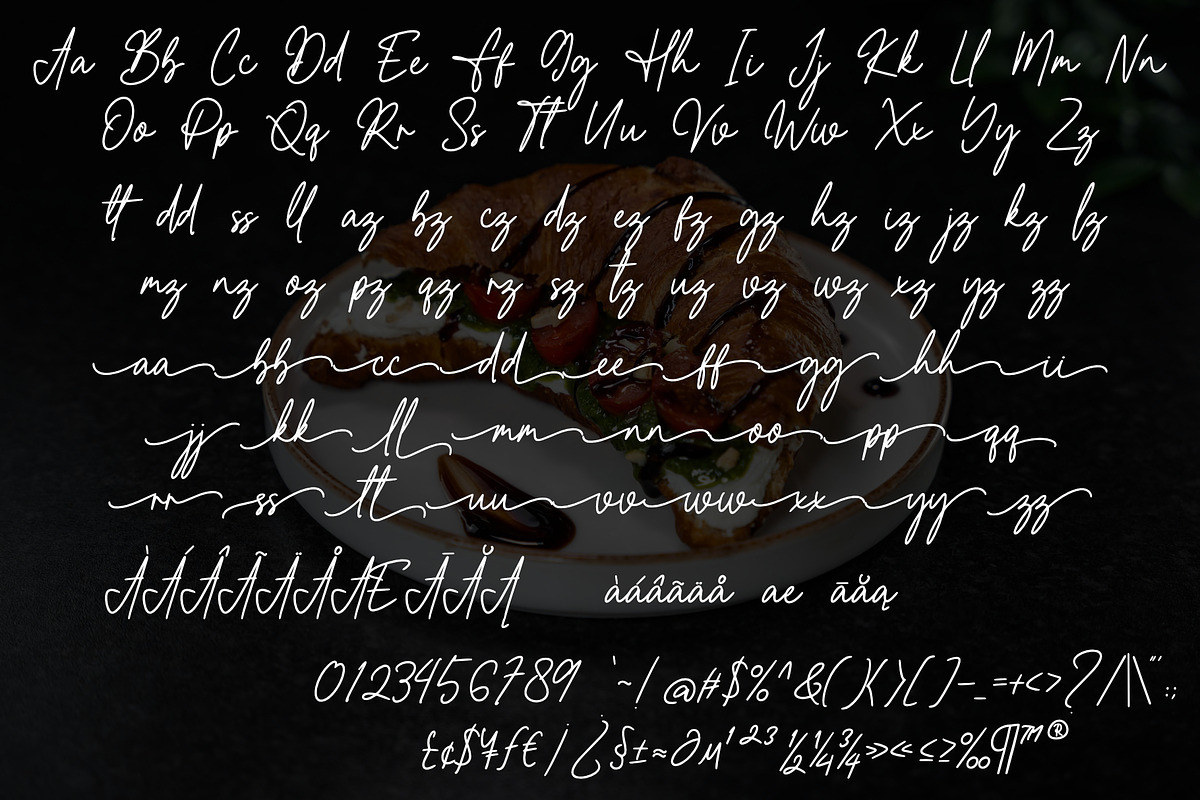 Aa Bb Cc Dd Ee Ff Gg Hh Ii Jj Kk Ll Mm Nn
Oo Pp Qq Rr Ss Tt Uu Vv Ww Xx Yy Zz
tt dd ss ll az bz cz dz ez fz gz hz iz jz kz lz
mz nz oz pz qz rz sz tz uz vz wz xz yz zz
aa bb cc dd ee ff gg hh ii
jj kk ll mm nn oo pp qq
rr ss tt uu vv ww xx yy zz
ÀÁÂÃÄÅÆ ĀĂĄ àáâãäå ae āăą
0123456789 `~! @#$%^&(){}[]-_=+<>?/|\"':;
£¢$¥ƒ€¡¿§±≈∂µ¹²³½¼¾»«≤≥‰¶™®